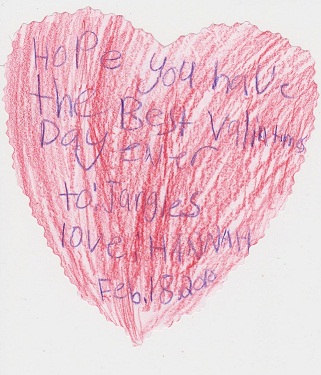 HOPe you have
the Best Valintins
Day ever
to: Jangles
love, HANNAH
Feb. 18. 2010